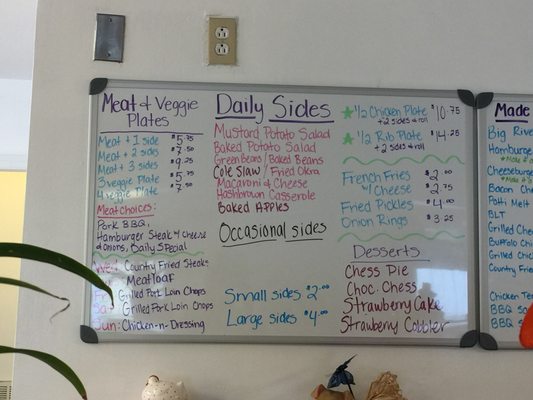 Meat & Veggie
Plates
Meat + 1 side $5.75
Meat + 2 sides $7.50
Meat + 3 sides $9.25
3 veggie Plate $5.75
4 veggie Plate $7.50
Meat Choices:
Pork BBQ,
Hamburger Steak w/ cheese
& onions, Daily Special
Wed: Country Fried Steak
Meatloaf
Fri: Grilled Pork Loin Chops
Sa Grilled Pork Loin Chops
Sun: Chicken-n-Dressing
Daily Sides
Mustard Potato Salad
Baked Potato Salad
Green Beans / Baked Beans
Cole Slaw / Fried Okra
Macaroni & Cheese
Hashbrown Casserole
Baked Apples
Occasional sides
Small sides $2.00
Large sides $4.00
1/2 Chicken Plate $10.75
+ 2 sides & roll
1/2 Rib Plate $14.25
+ 2 sides & roll
French Fries $2.00
w/ Cheese $2.75
Fried Pickles $4.00
Onion Rings $3.25
Desserts
Chess Pie
Choc. Chess
Strawberry Cake
Strawberry Cobbler
Made
Big River
Hamburge
Cheesebur
Bacon Che
Patti Melt
BLT
Grilled Chee
Buffalo Chic
Grilled Chic
Country Frie
Chicken Ten
BBQ Sa
BBQ S
BBQ S